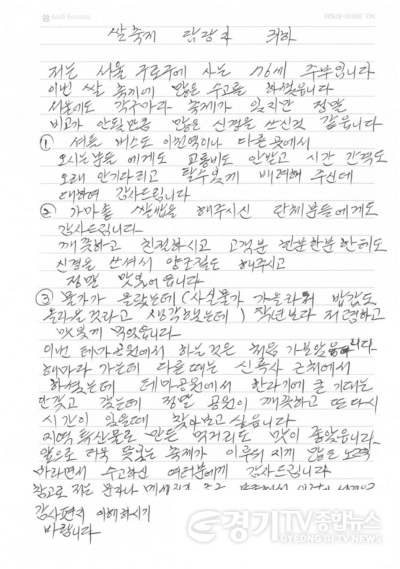 쌀축제 담당자 귀하
저는 서울 구로구에 사는 76세 주부입니다
이번 쌀 축제에 많은 수고를 하셨읍니다
서울에도 각구마다 축제가 있지만 정말
비교가 안될만큼 많은 신경을 쓰신것 같읍니다
① 셔틀 버스도 이천역이나 다른곳에서
오시는분들에게도 교통비도 안받고 시간 간격도
오래 안기다리고 탈수있게 배려해 주신데
대하여 감사드립니다
② 가마솥 쌀밥을 해주시신 단체분들에게도
감사드립니다
깨끗하고 친절하시고 고객분 한분한분한테도
신경을 쓰셔서 양조절도 해주시고
정말 맛있어읍니다
③ 물가가 올랐는데 (사실물가 가올라 밥값도
올라온것라고 생각했는데) 작년보다 저렴하고
맛있게 먹었읍니다
이번 테마공원에서 하는것은 처음 가보았읍니다
해마다 가는데 다른때는 신둑사 근처에서
하셨는데 테마공원에서 한다기에 큰 기대는
안갖고 갔는데 정말 공원이 깨끗하고 또 다시
시간이 있을때 찾아보고 싶읍니다
지역 특산물로 만든 먹거리도 많이 좋았읍니다
앞으로 더욱 뜻있는 축제가 이루어지게 많은 노력
바라면서 수고하신 여러분에게 감사드립니다
참고로 저는
감사편지 이해하시기
바랍니다
경기TV종합뉴스
GYEONG GI TV NEWS